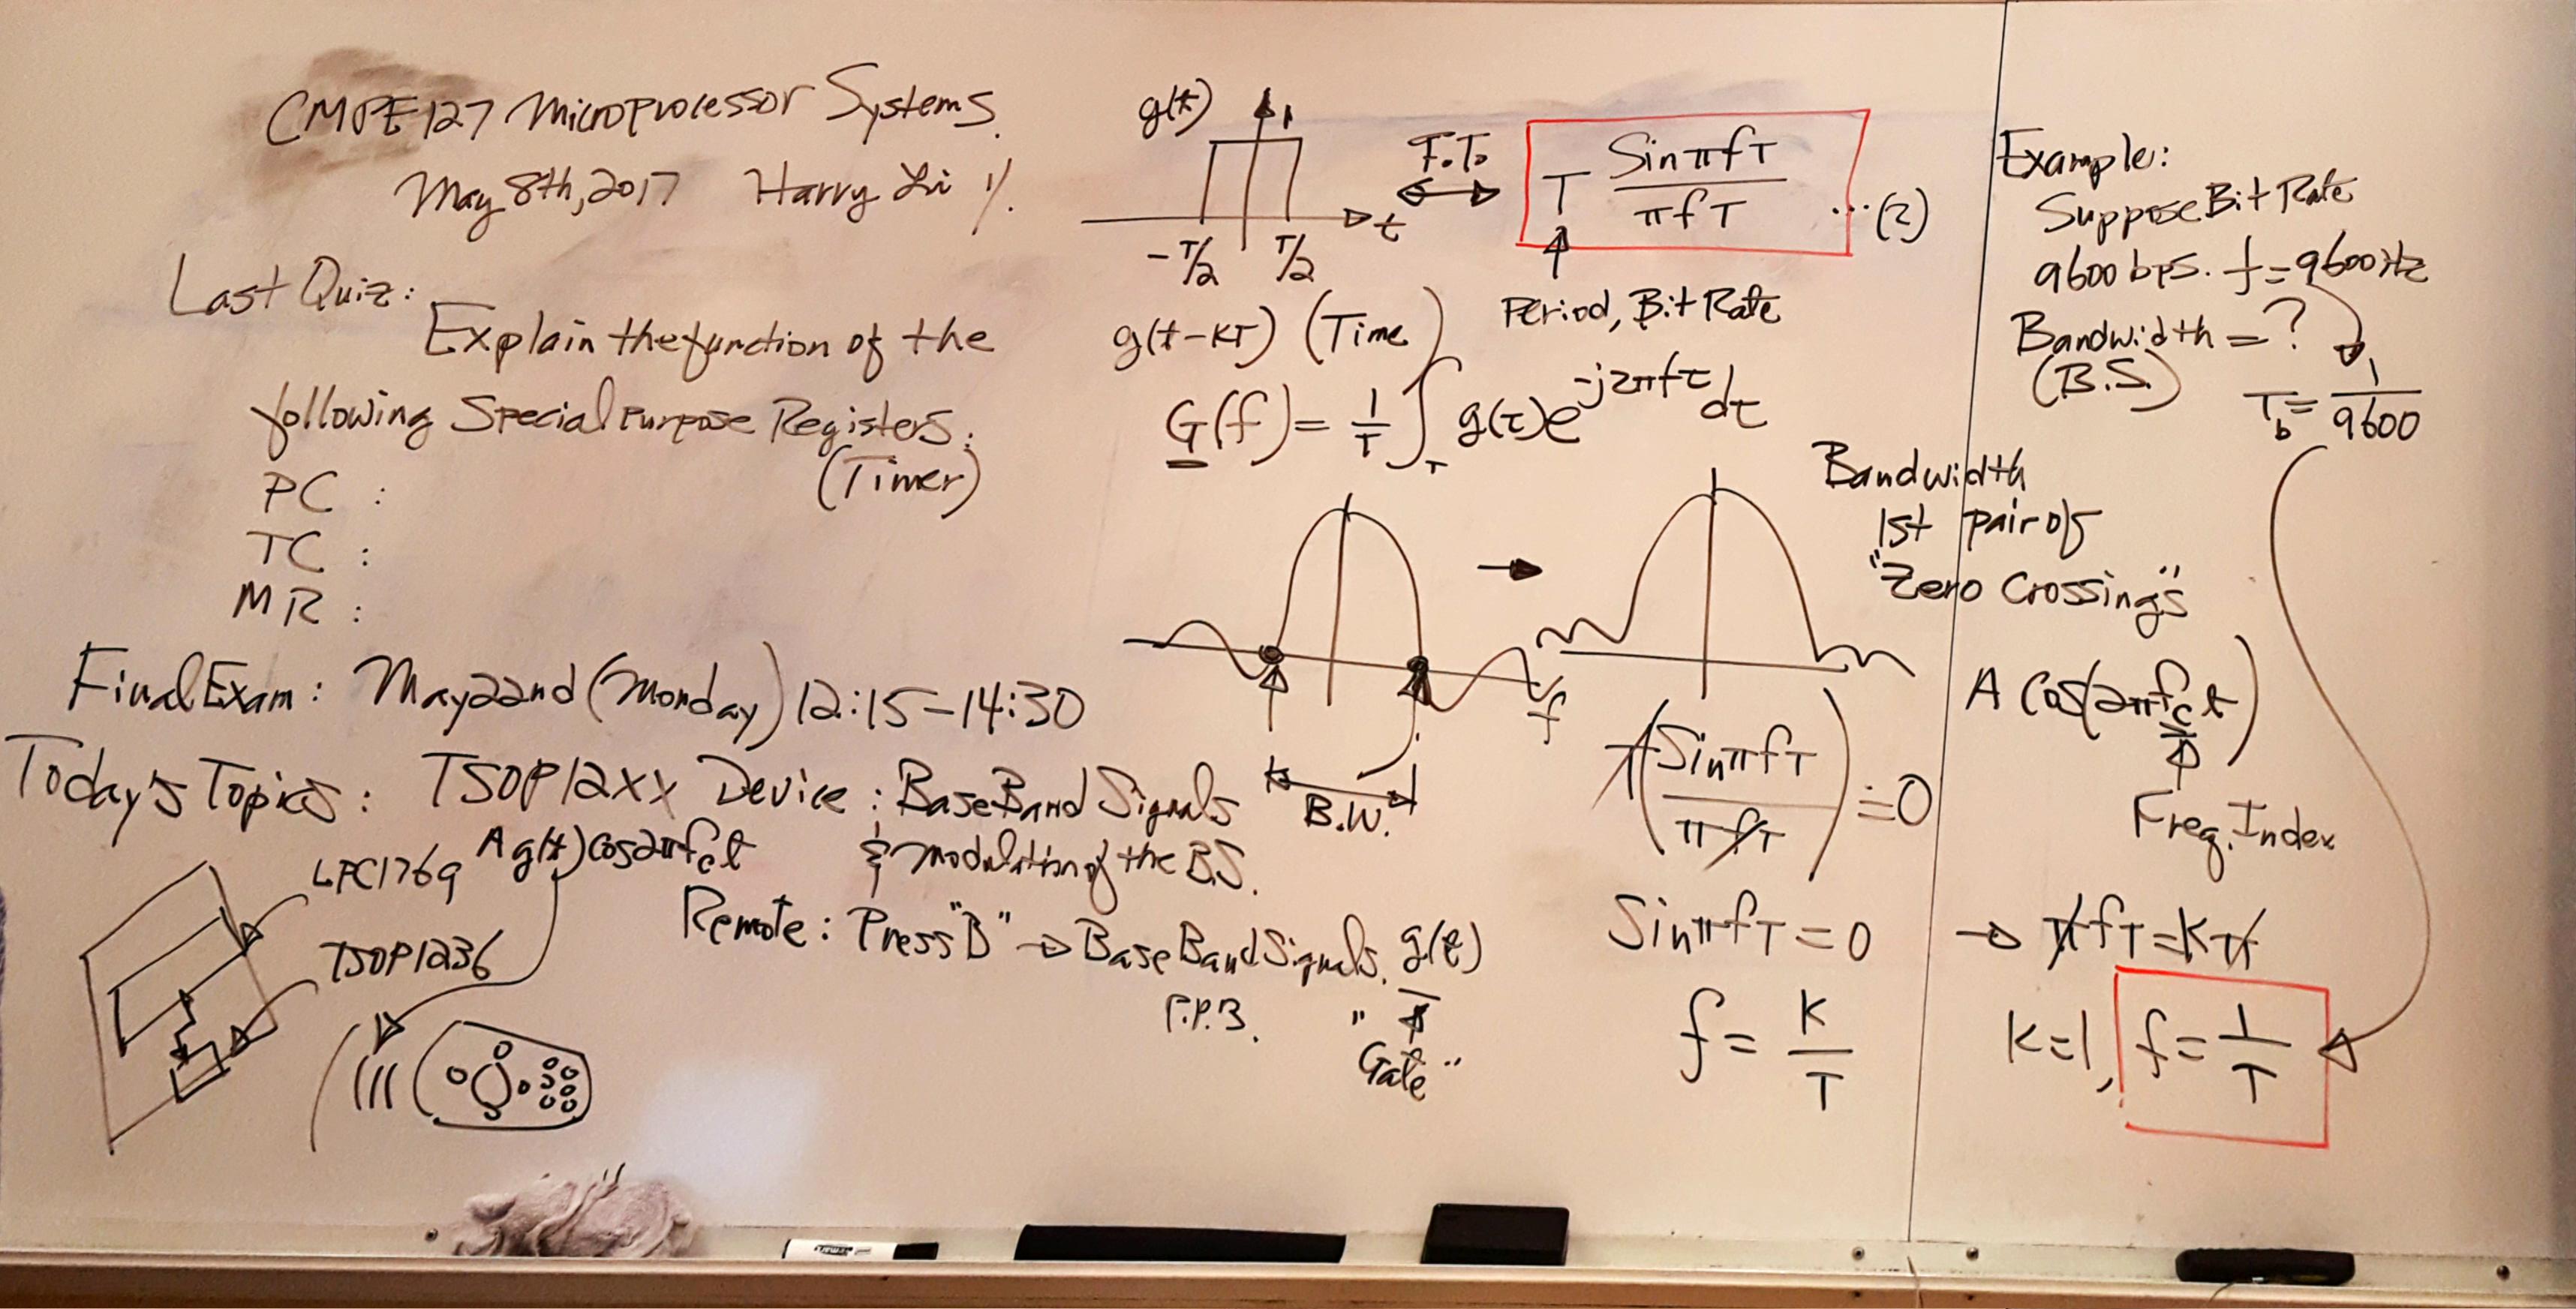 CMPE127 Microprocessor Systems.
May 8th, 2017 Harry Li
Last Quiz:
Explain the function of the
following Special Purpose Registers.
(Timer)
PC :
TC :
MR :
Final Exam: May 22nd (Monday) 12:15-14:30
Today's Topics: TSOP12XX Device: BaseBand Signals
& modulation of the B.S.
LPC1769
A g(t) cos2πfct
TSOP1236
Remote: Press "B" → BaseBand Signals. g(t)
"Gate"
g(t)
1
-T/2 T/2
t
F.T.
T Sin πfT / πfT ...(2)
Period, Bit Rate
g(t-KT) (Time)
G(f) = 1/T ∫T g(τ)e^-j2πfτ dτ
f
B.W.
Bandwidth
1st pair of
"Zero Crossings"
T(Sin πfT / πfT) = 0
Sin πfT = 0 → πfT = Kπ
f = K/T
K=1, f = 1/T
Example:
Suppose Bit Rate
9600 bps. f = 9600Hz
Bandwidth = ?
(B.S.)
Tb = 1/9600
A Cos(2πfct)
Freq. Index